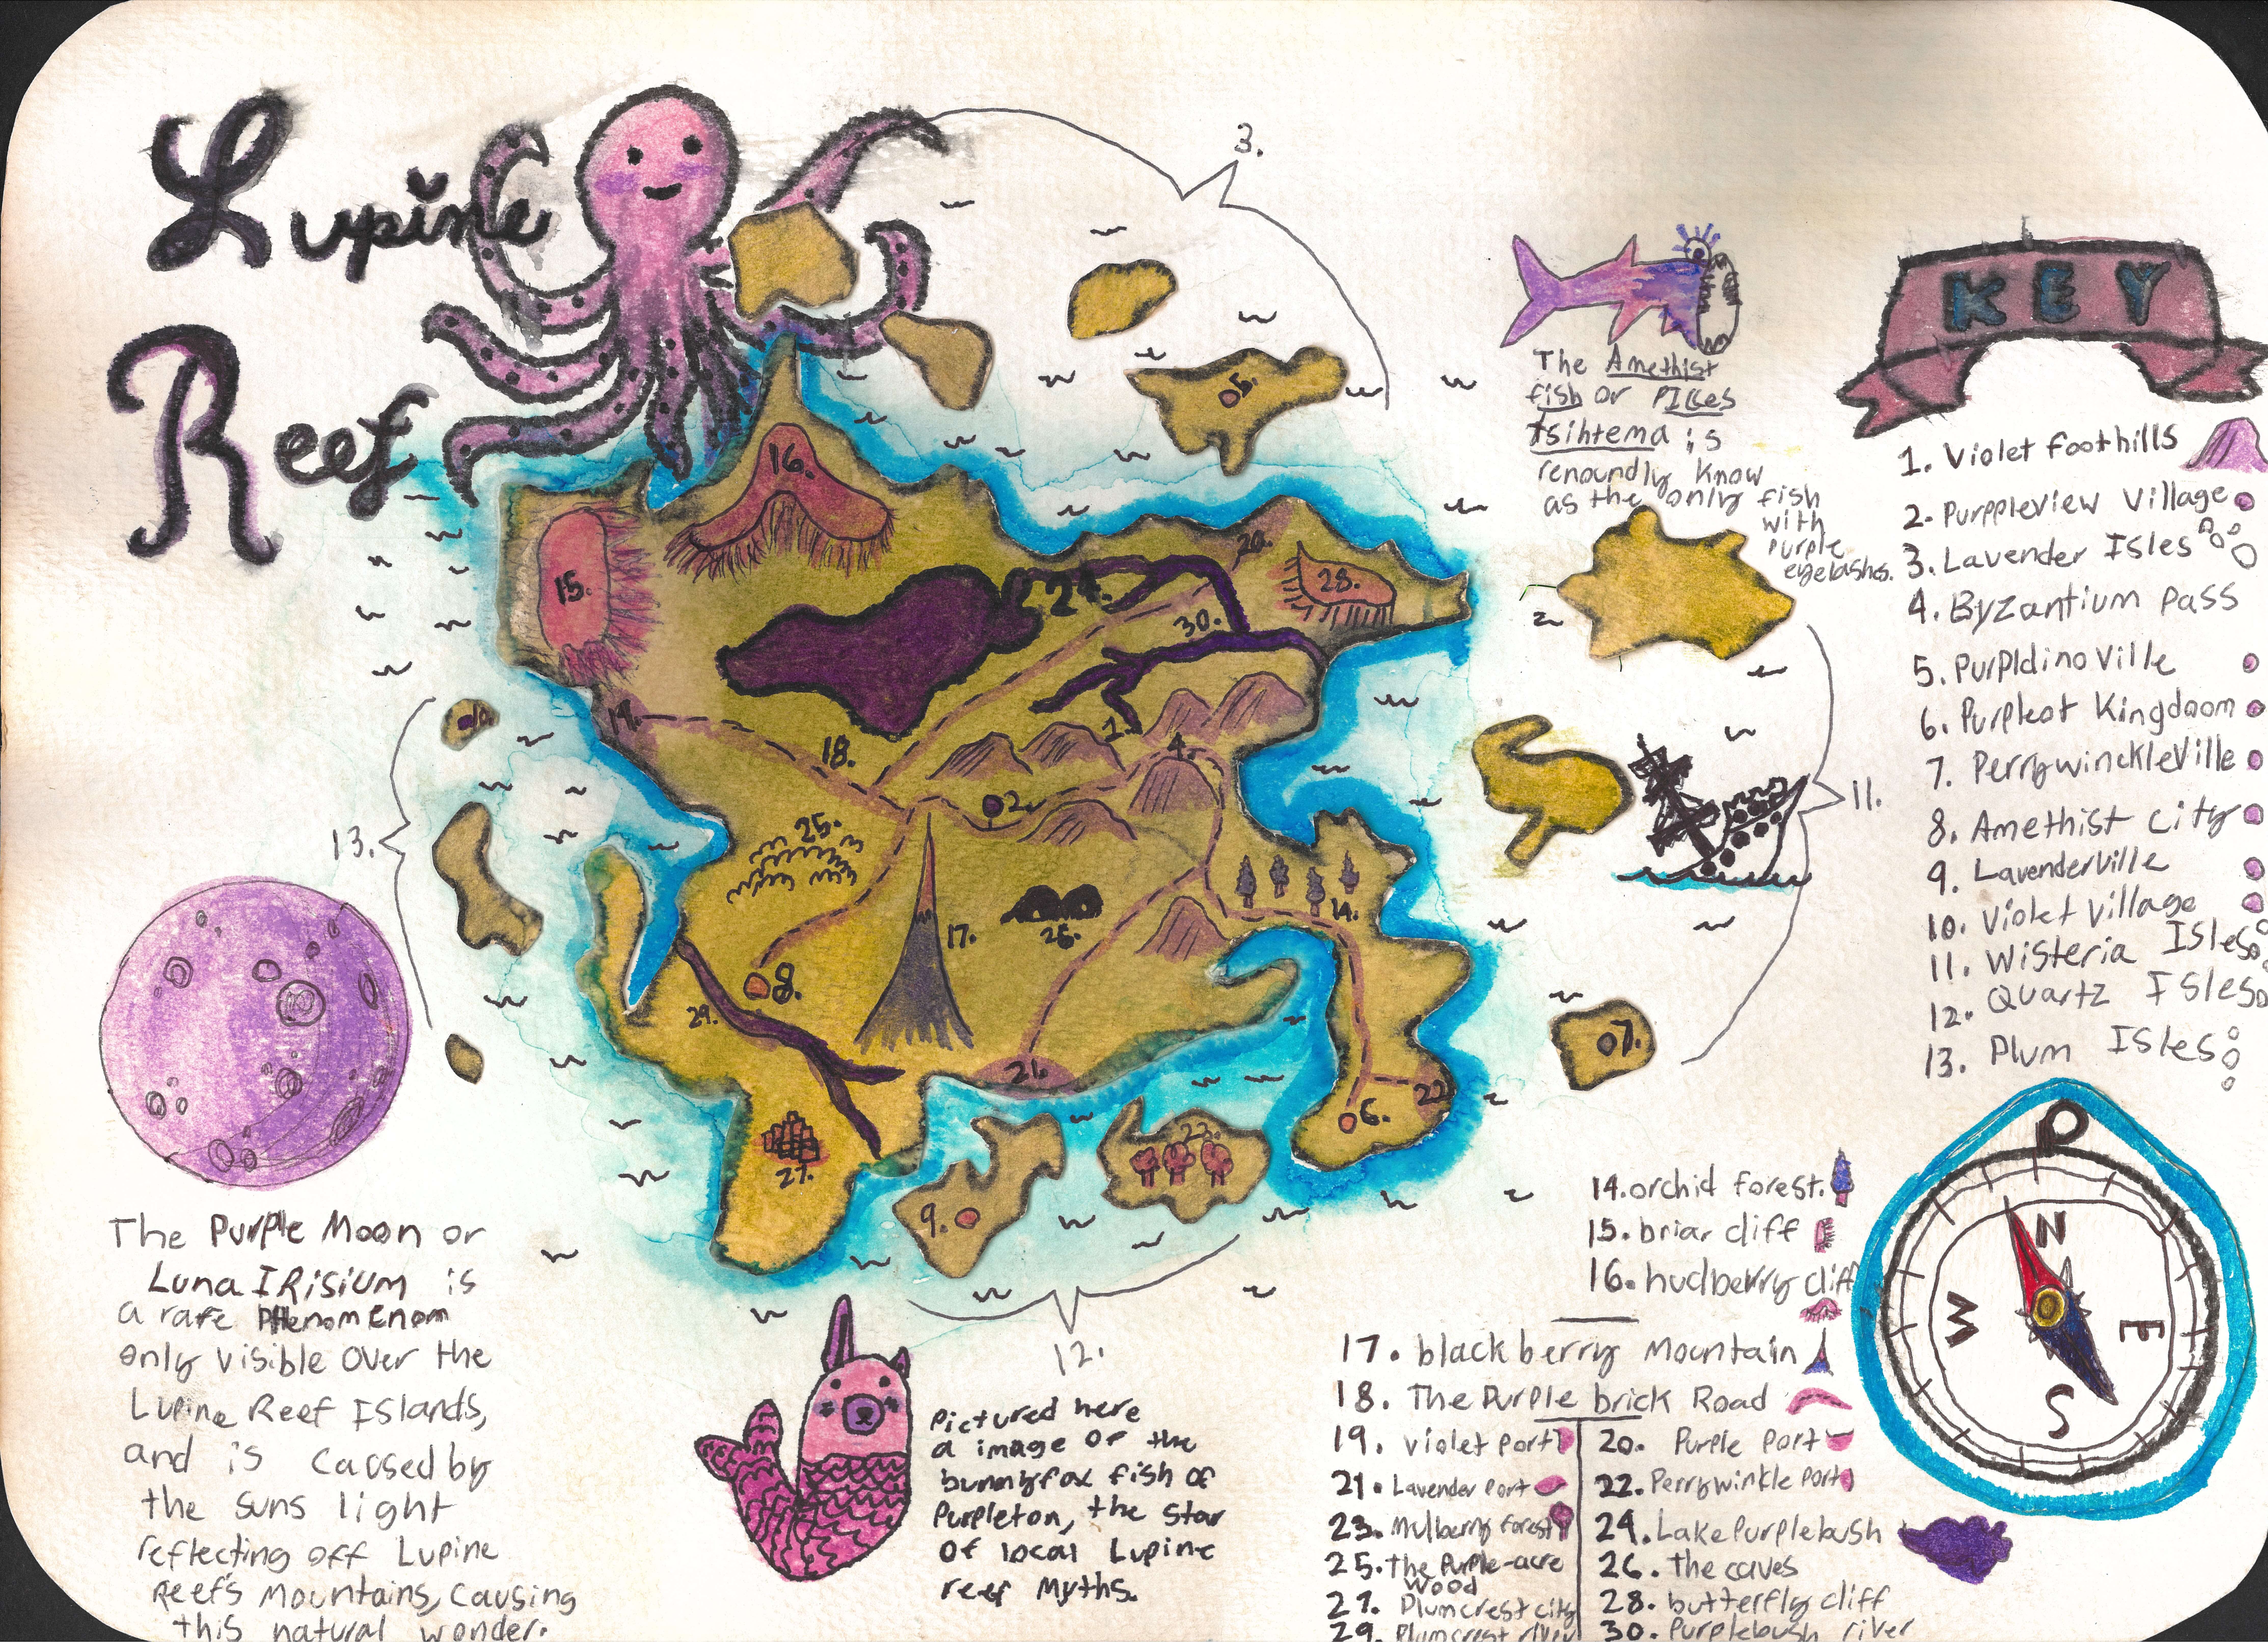 Lupine
Reef
3.
The Amethist
fish or PISces
tsihtema is
renoundly know
as the only fish
with
purple
eyelashes.
KEY
1. Violet foothills
2. Purppleview Village
3. Lavender Isles
4. Byzantium pass
5. PurPldinoville
6. Purpleot Kingdoom
7. PerrywinckleVille
8. Amethist city
9. Lavenderville
10. Violet Village
11. Wisteria Isles
12. Quartz Isles
13. Plum Isles
16.
15.
5.
20.
24.
28.
30.
19.
10.
18.
1.
4.
2.
11.
25.
13.
14.
17.
26.
8.
29.
7.
21.
22.
6.
27.
23.
9.
12.
The Purple Moon or
Luna IRisiUM is
a rare PHenomEnom
only visible over the
Lupine Reef Islands,
and is caused by
the suns light
reflecting off Lupine
Reefs mountains, causing
this natural wonder.
Pictured here
a image of the
bunnyfox fish of
Purpleton, the star
of local Lupine
reef Myths.
14. orchid forest.
15. briar cliff
16. hudberry cliff
17. black berry Mountain
18. The Purple brick Road
19. violet port
20. Purple port
21. Lavender port
22. Perrywinkle port
23. Mulberry forest
24. Lake Purplebush
25. the Purple-acre
wood
26. the caves
27. Plumcrest city
28. butterfly cliff
29. Plumcrest river
30. Purplebush river
N
E
S
W